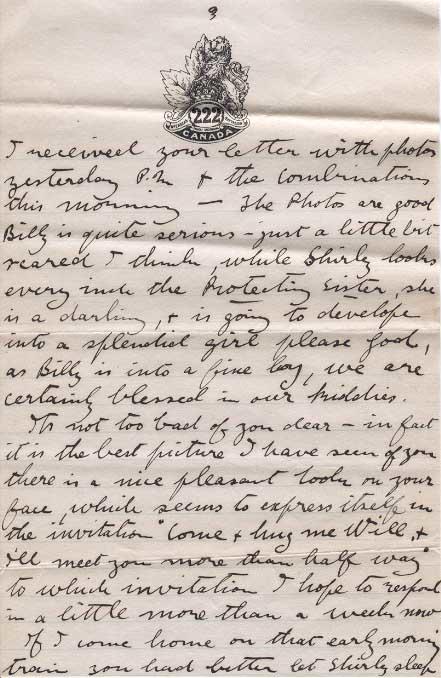 3
222
CANADA
I received your letter with photos
yesterday P.M & the Combinations
this morning — The Photos are good
Billy is quite serious - just a little bit
scared I think, while Shirly looks
every inch the Protecting Sister, she
is a darling, & is going to develope
into a splendid girl please God,
as Billy is into a fine boy, we are
certainly blessed in our kiddies.
Its not too bad of you dear - in fact
it is the best picture I have seen of you
there is a nice pleasant look on your
face, which seems to express itself in
the invitation "Come & hug me Will, &
I'll meet you more than half way"
to which invitation I hope to respond
in a little more than a week now
If I come home on that early morning
train you had better let Shirly sleep